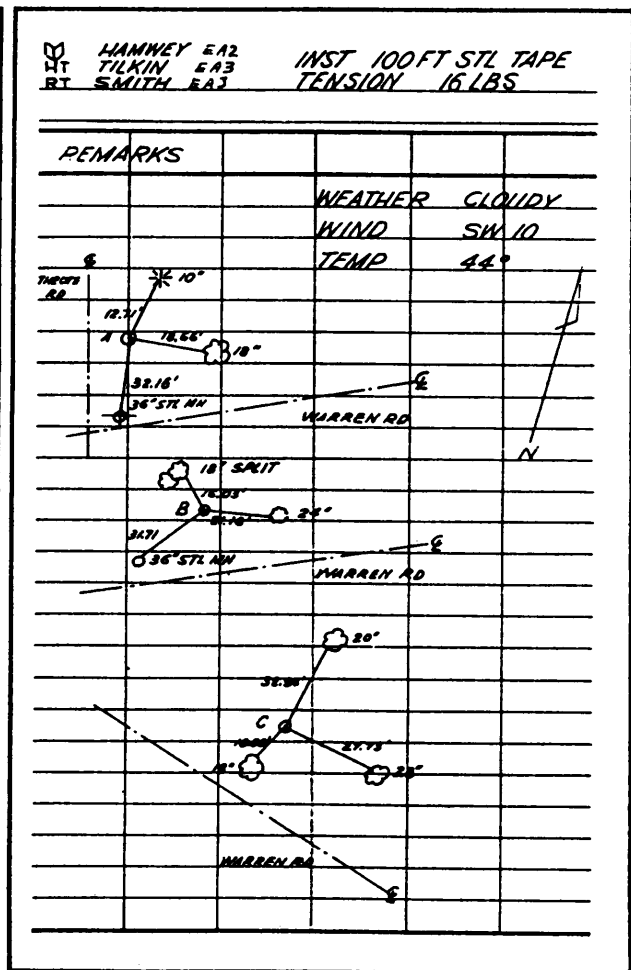 HAMWEY EA2
HT TILKIN EA3
RT SMITH EA3
INST 100 FT STL TAPE
TENSION 16 LBS
REMARKS
WEATHER CLOUDY
WIND SW 10
TEMP 44°
RD
10"
12.71'
A
18.66'
18"
32.16'
36" STL MH
WARREN RD
N
18" SPLIT
B
24"
31.71
36" STL MH
WARREN RD
20"
C
27.73'
WARREN RD